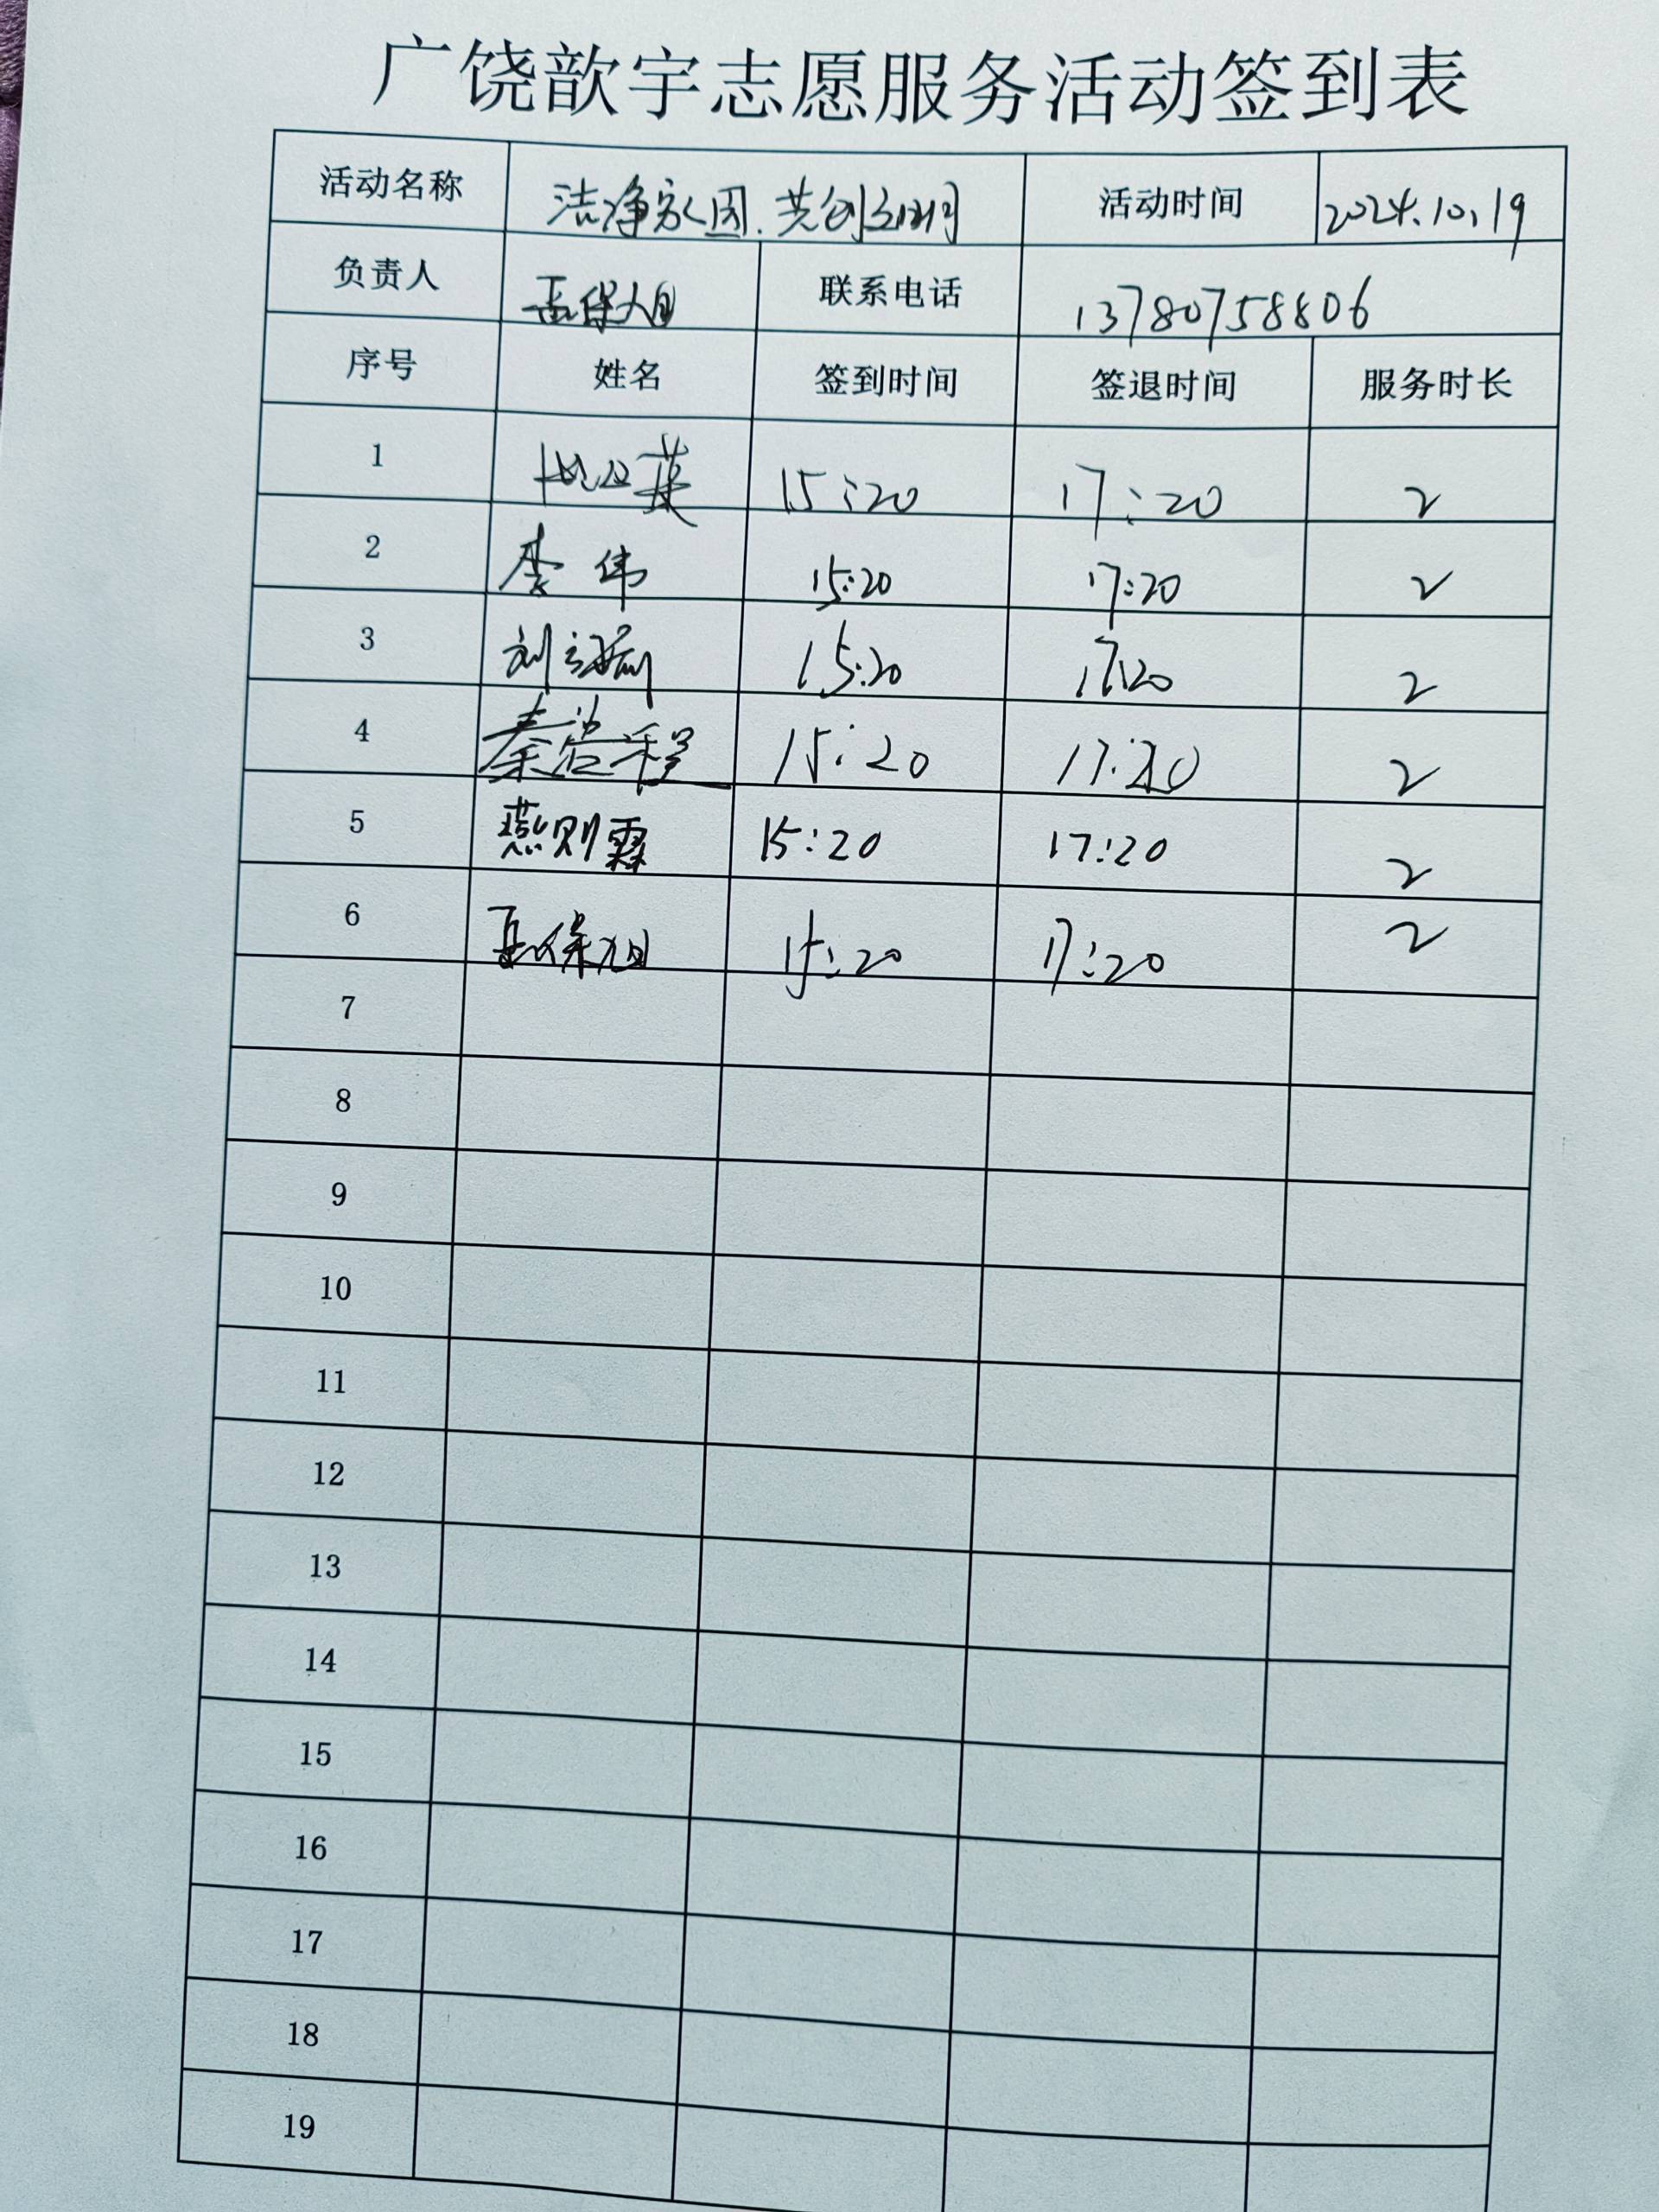 广饶歆宇志愿服务活动签到表
活动名称 洁净家园.共创文明 活动时间 2024.10.19
负责人 联系电话 13780758806
序号 姓名 签到时间 签退时间 服务时长
1 15:20 17:20 2
2 李伟 15:20 17:20 2
3 刘 15:20 17:20 2
4 秦浩程 15:20 17:20 2
5 燕则霖 15:20 17:20 2
6 15:20 17:20 2
7
8
9
10
11
12
13
14
15
16
17
18
19